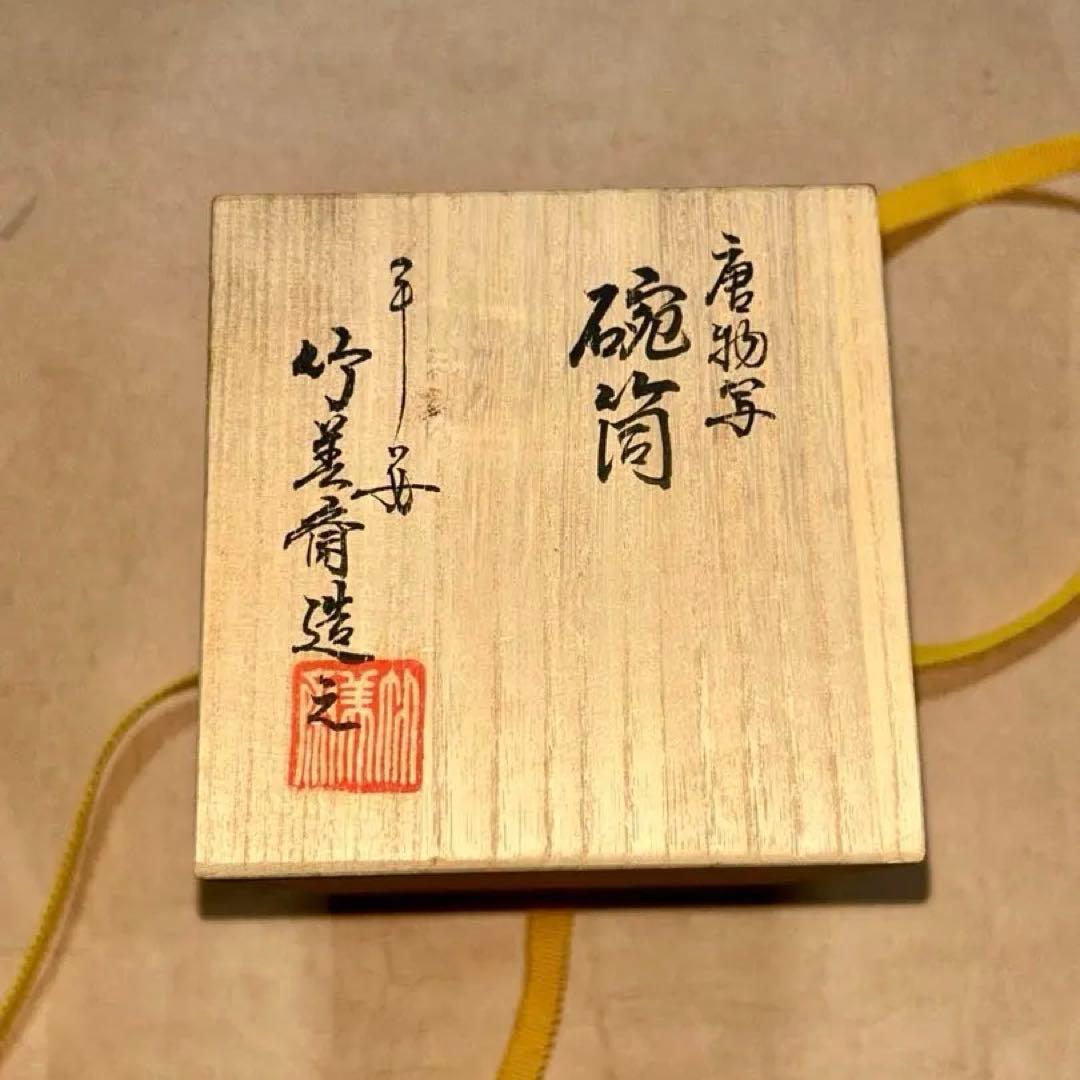 唐物写
碗筒
平安
竹美斎造之